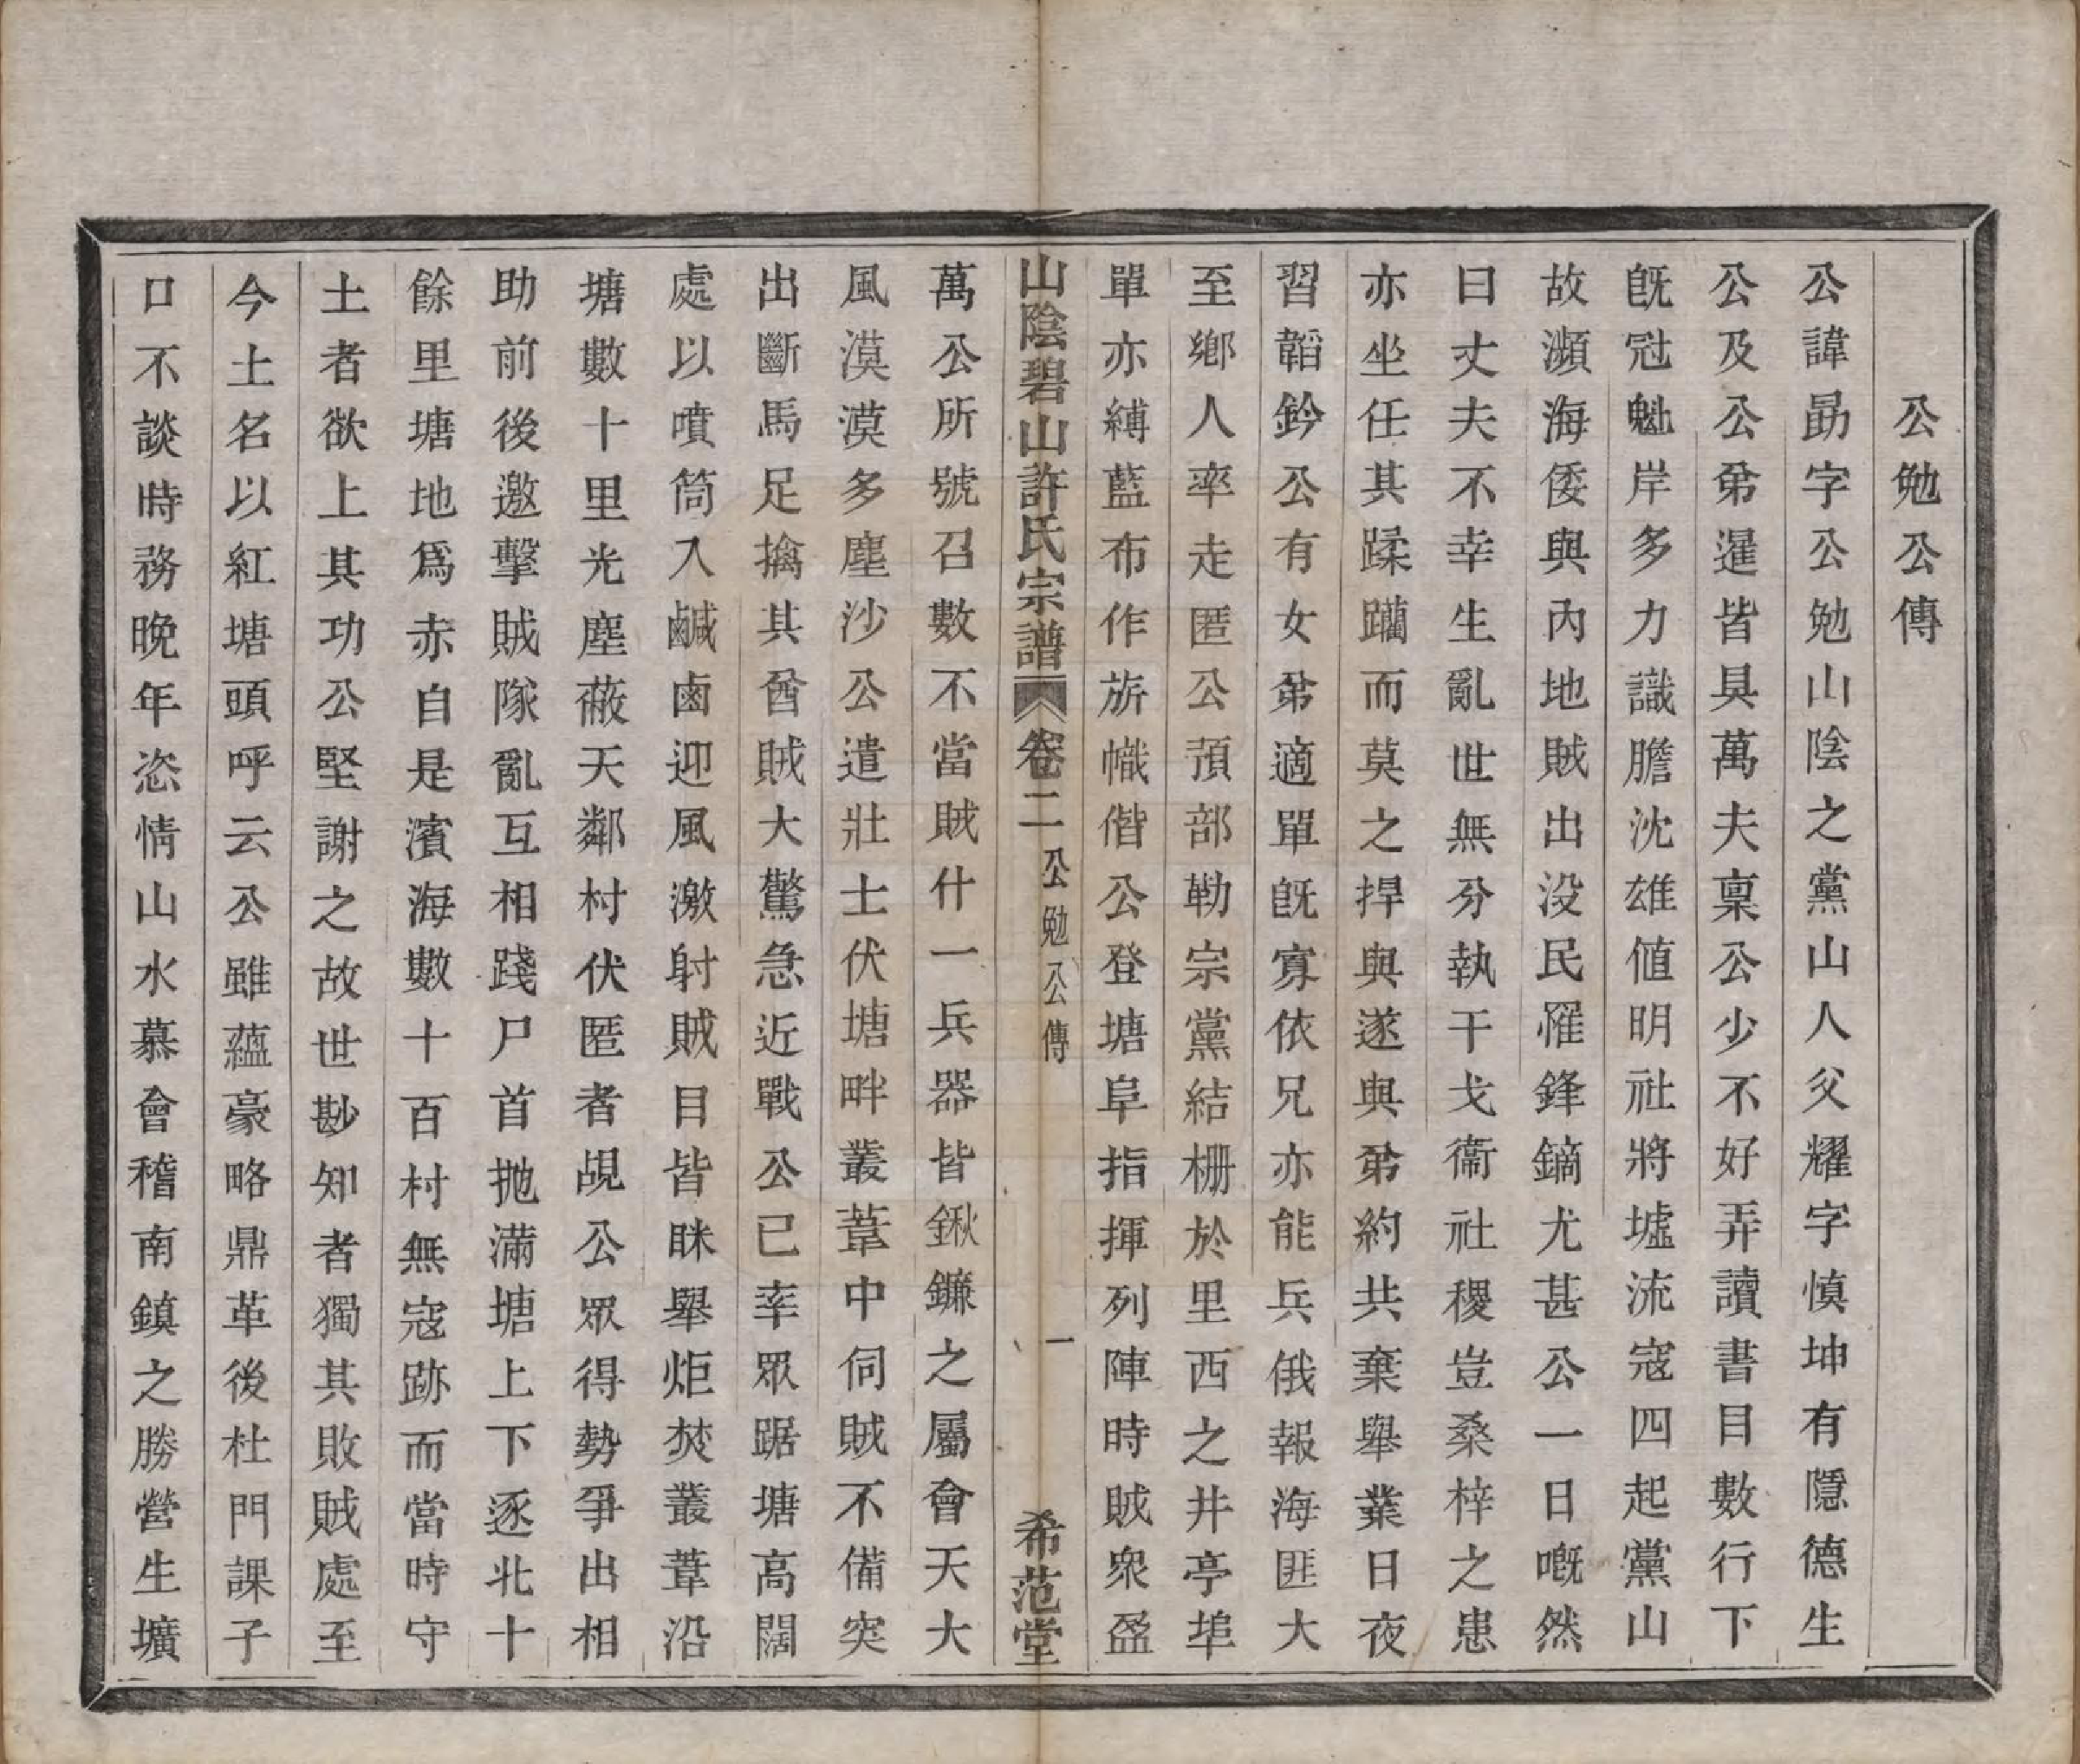 公勉公傳
公諱勗字公勉山陰之黨山人父耀字慎坤有隱德生
公及公弟暹皆具萬夫稟公少不好弄讀書目數行下
旣冠魁岸多力識膽沈雄值明社將墟流寇四起黨山
故瀕海倭與內地賊出没民罹鋒鏑尤甚公一日嘅然
曰丈夫不幸生亂世無分執干戈衞社稷豈桑梓之患
亦坐任其蹂躪而莫之捍與遂與弟約共棄舉業日夜
習韜鈐公有女弟適單旣寡依兄亦能兵俄報海匪大
至鄉人率走匿公預部勒宗黨結柵於里西之井亭埠
單亦縛藍布作旂幟偕公登塘阜指揮列陣時賊衆盈
山陰碧山許氏宗譜 卷二 公勉公傳 一 希范堂
萬公所號召數不當賊什一兵器皆鍬鐮之屬會天大
風漠漠多塵沙公遣壯士伏塘畔叢葦中伺賊不備突
出斷馬足擒其酋賊大驚急近戰公已率眾踞塘高闊
處以噴筒入鹹鹵迎風激射賊目皆眯舉炬焚叢葦沿
塘數十里光塵蔽天鄰村伏匿者覘公眾得勢爭出相
助前後邀擊賊隊亂互相踐尸首拋滿塘上下逐北十
餘里塘地爲赤自是濱海數十百村無寇跡而當時守
土者欲上其功公堅謝之故世尟知者獨其敗賊處至
今土名以紅塘頭呼云公雖蘊豪略鼎革後杜門課子
口不談時務晚年恣情山水慕會稽南鎮之勝營生壙